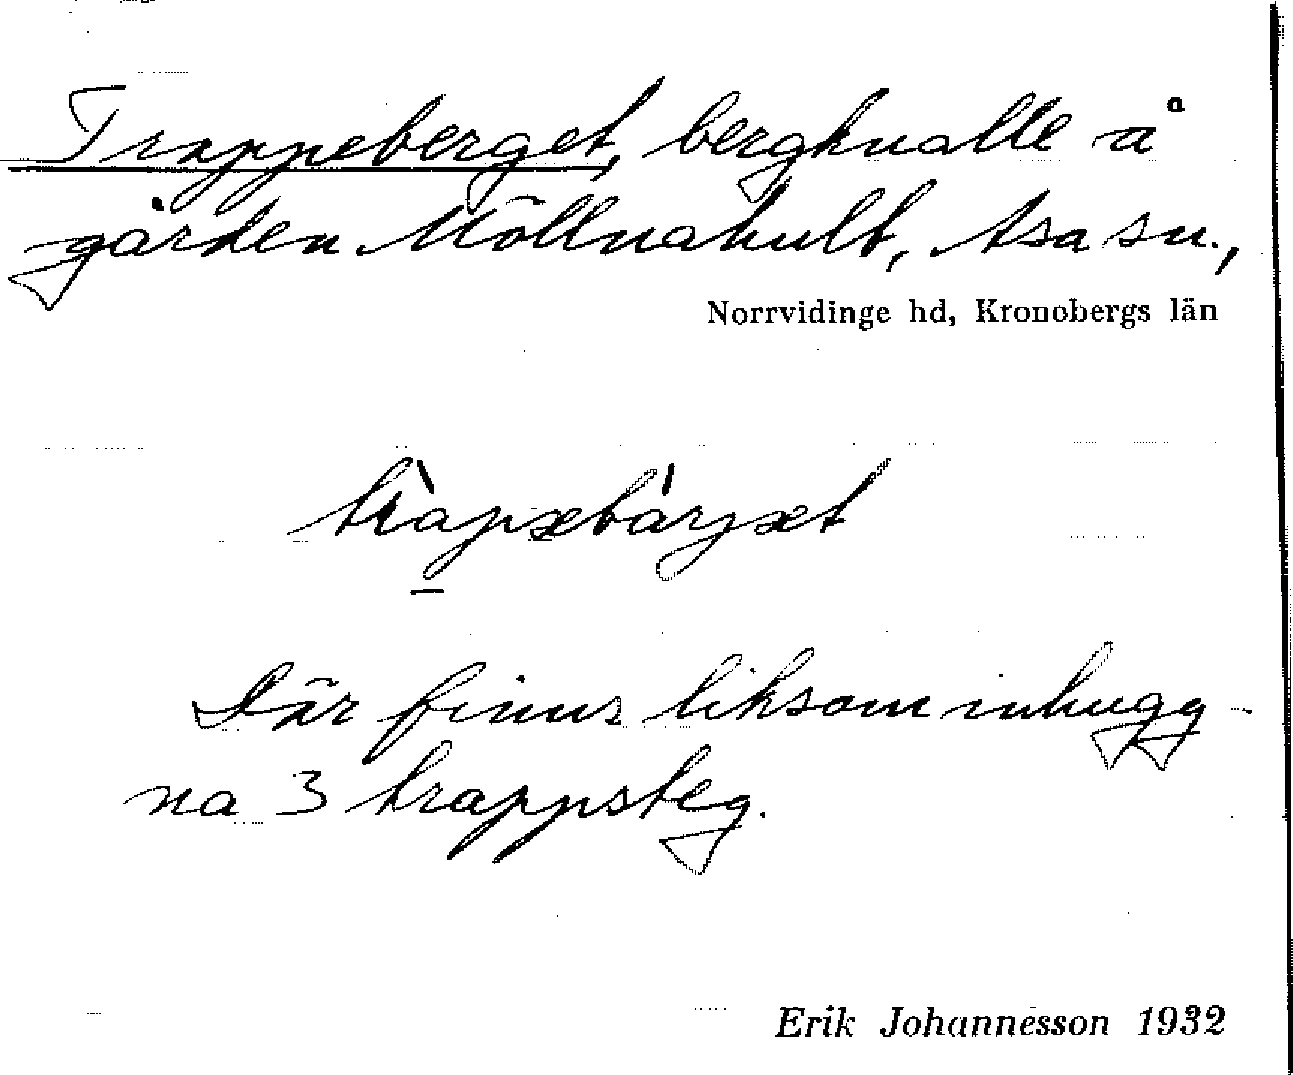 Trappeberget, bergknalle å
gården Möllnahult, Asa sn.,
Norrvidinge hd, Kronobergs län
tràpæbárjæt
Där finns liksom inhugg-
na 3 trappsteg.
Erik Johannesson 1932